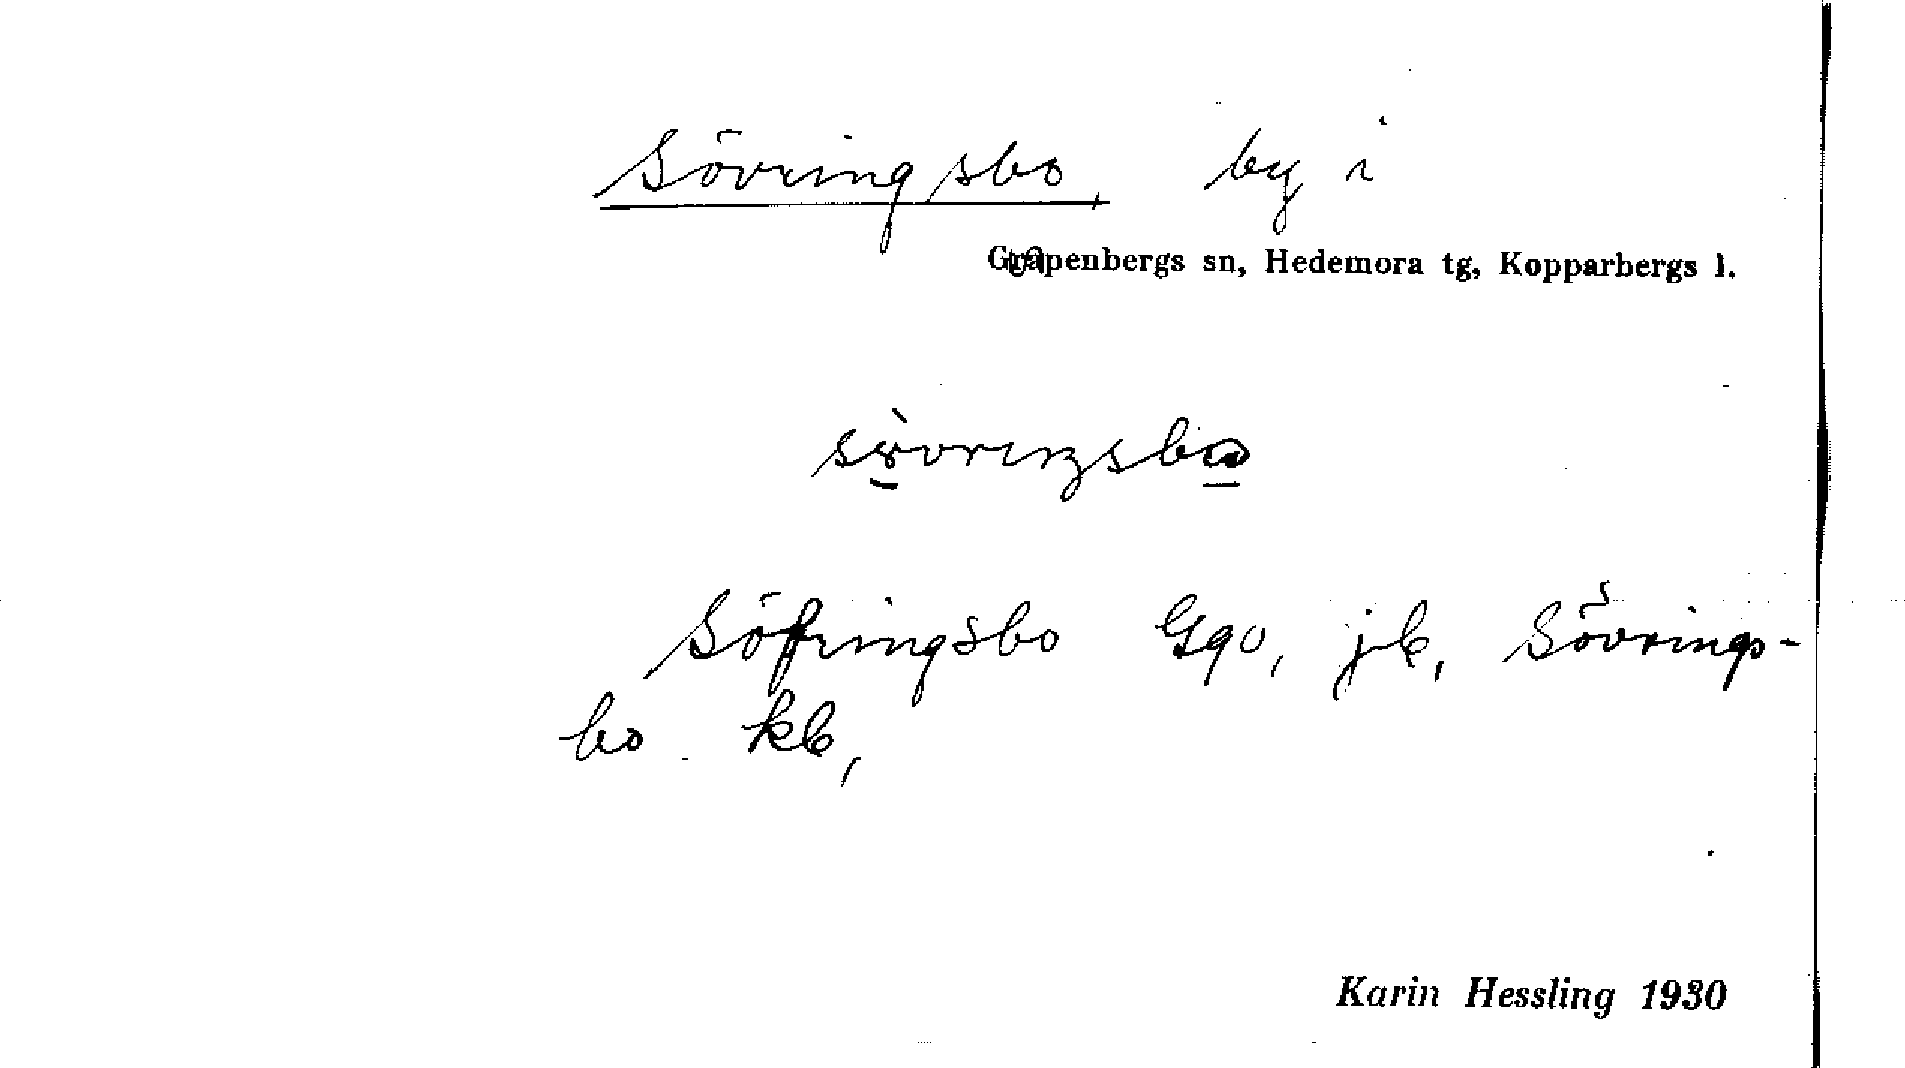 Sövringsbo, by i
Garpenbergs sn, Hedemora tg, Kopparbergs l.
Söfringsbo Gqo, jb, Sövrings-
bo kb,
Karin Hessling 1930